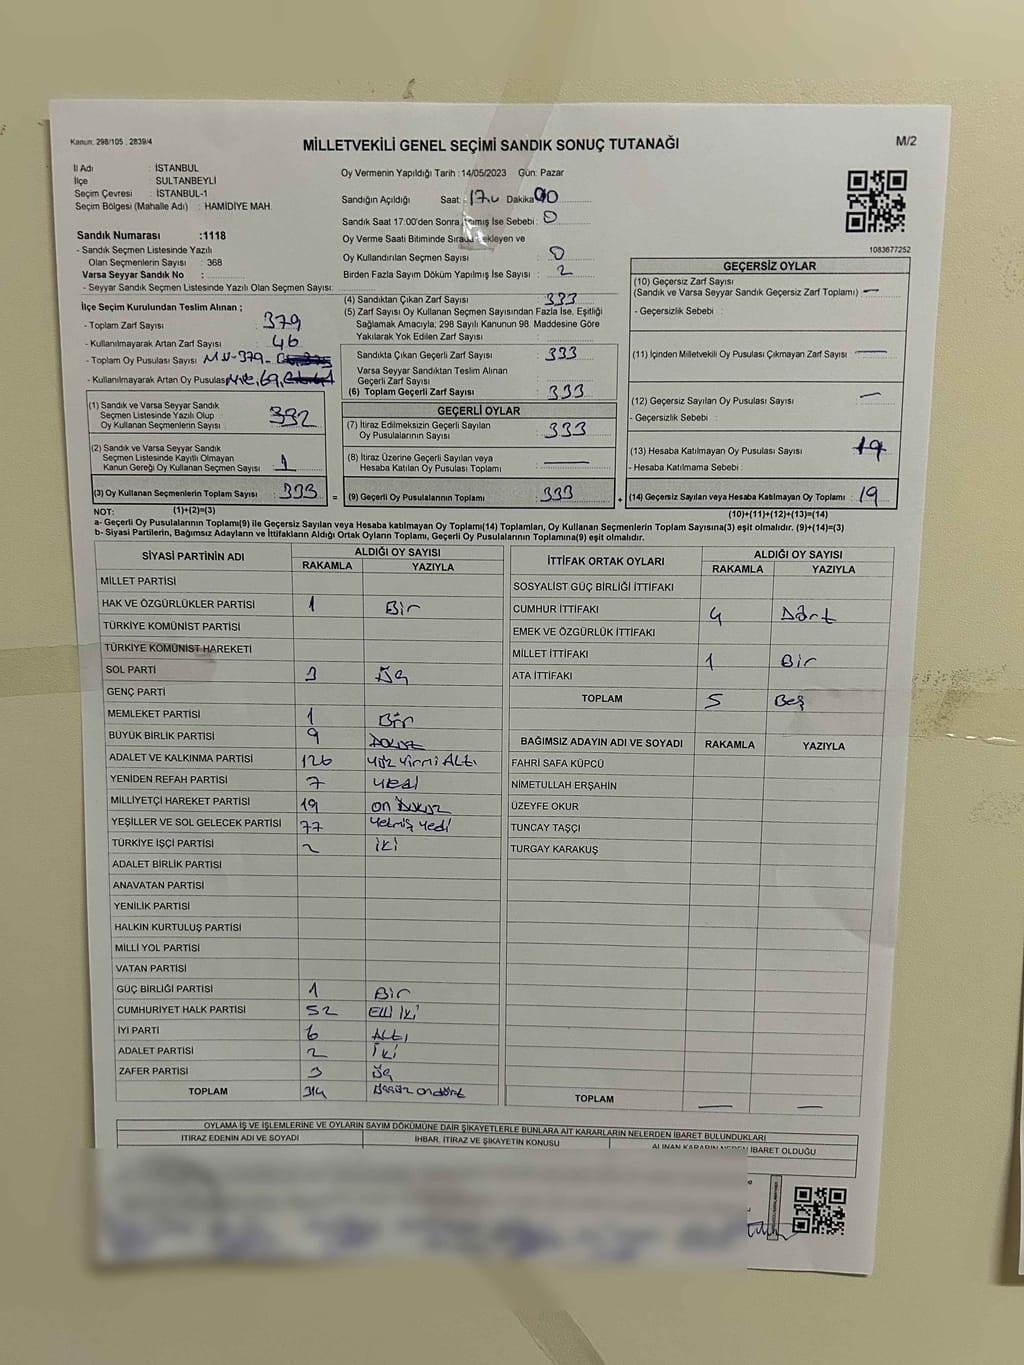 Kanun: 298/105 , 2839/4
MİLLETVEKİLİ GENEL SEÇİMİ SANDIK SONUÇ TUTANAĞI
M/2
İl Adı : İSTANBUL
İlçe : SULTANBEYLİ
Seçim Çevresi : İSTANBUL-1
Seçim Bölgesi (Mahalle Adı) : HAMİDİYE MAH.
Oy Vermenin Yapıldığı Tarih :14/05/2023 Gün: Pazar
Sandığın Açıldığı Saat: Dakika
Sandık Saat 17:00'den Sonra Açılmış İse Sebebi : 0
Oy Verme Saati Bitiminde Sırada Bekleyen ve
Oy Kullandırılan Seçmen Sayısı : 0
Birden Fazla Sayım Döküm Yapılmış İse Sayısı : 2
1083677252
Sandık Numarası :1118
- Sandık Seçmen Listesinde Yazılı
Olan Seçmenlerin Sayısı : 368
Varsa Seyyar Sandık No :
- Seyyar Sandık Seçmen Listesinde Yazılı Olan Seçmen Sayısı:
İlçe Seçim Kurulundan Teslim Alınan ;
- Toplam Zarf Sayısı : 379
- Kullanılmayarak Artan Zarf Sayısı : 46
- Toplam Oy Pusulası Sayısı 379
- Kullanılmayarak Artan Oy Pusulası
(1) Sandık ve Varsa Seyyar Sandık
Seçmen Listesinde Yazılı Olup
Oy Kullanan Seçmenlerin Sayısı : 332
(2) Sandık ve Varsa Seyyar Sandık
Seçmen Listesinde Kayıtlı Olmayan
Kanun Gereği Oy Kullanan Seçmen Sayısı : 1
(3) Oy Kullanan Seçmenlerin Toplam Sayısı : 333
(1)+(2)=(3)
(4) Sandıktan Çıkan Zarf Sayısı : 333
(5) Zarf Sayısı Oy Kullanan Seçmen Sayısından Fazla İse, Eşitliği
Sağlamak Amacıyla, 298 Sayılı Kanunun 98. Maddesine Göre
Yakılarak Yok Edilen Zarf Sayısı :
Sandıkta Çıkan Geçerli Zarf Sayısı : 333
Varsa Seyyar Sandıktan Teslim Alınan
Geçerli Zarf Sayısı :
(6) Toplam Geçerli Zarf Sayısı : 333
GEÇERLİ OYLAR
(7) İtiraz Edilmeksizin Geçerli Sayılan
Oy Pusulalarının Sayısı : 333
(8) İtiraz Üzerine Geçerli Sayılan veya
Hesaba Katılan Oy Pusulası Toplamı : —
= (9) Geçerli Oy Pusulalarının Toplamı : 333 +
GEÇERSİZ OYLAR
(10) Geçersiz Zarf Sayısı
(Sandık ve Varsa Seyyar Sandık Geçersiz Zarf Toplamı) : —
- Geçersizlik Sebebi :
(11) İçinden Milletvekili Oy Pusulası Çıkmayan Zarf Sayısı : —
(12) Geçersiz Sayılan Oy Pusulası Sayısı : —
- Geçersizlik Sebebi :
(13) Hesaba Katılmayan Oy Pusulası Sayısı : 19
- Hesaba Katılmama Sebebi :
(14) Geçersiz Sayılan veya Hesaba Katılmayan Oy Toplamı : 19
(10)+(11)+(12)+(13)=(14)
NOT:
a- Geçerli Oy Pusulalarının Toplamı(9) ile Geçersiz Sayılan veya Hesaba katılmayan Oy Toplamı(14) Toplamları, Oy Kullanan Seçmenlerin Toplam Sayısına(3) eşit olmalıdır. (9)+(14)=(3)
b- Siyasi Partilerin, Bağımsız Adayların ve İttifakların Aldığı Ortak Oyların Toplamı, Geçerli Oy Pusulalarının Toplamına(9) eşit olmalıdır.
SİYASİ PARTİNİN ADI ALDIĞI OY SAYISI
RAKAMLA YAZIYLA
MİLLET PARTİSİ
HAK VE ÖZGÜRLÜKLER PARTİSİ 1 Bir
TÜRKİYE KOMÜNİST PARTİSİ
TÜRKİYE KOMÜNİST HAREKETİ
SOL PARTİ 3 Üç
GENÇ PARTİ
MEMLEKET PARTİSİ 1 Bir
BÜYÜK BİRLİK PARTİSİ 9 Dokuz
ADALET VE KALKINMA PARTİSİ 126 Yüz Yirmi Altı
YENİDEN REFAH PARTİSİ 7 Yedi
MİLLİYETÇİ HAREKET PARTİSİ 19 On Dokuz
YEŞİLLER VE SOL GELECEK PARTİSİ 77 Yetmiş Yedi
TÜRKİYE İŞÇİ PARTİSİ 2 İki
ADALET BİRLİK PARTİSİ
ANAVATAN PARTİSİ
YENİLİK PARTİSİ
HALKIN KURTULUŞ PARTİSİ
MİLLİ YOL PARTİSİ
VATAN PARTİSİ
GÜÇ BİRLİĞİ PARTİSİ 1 Bir
CUMHURİYET HALK PARTİSİ 52 Elli İki
İYİ PARTİ 6 Altı
ADALET PARTİSİ 2 İki
ZAFER PARTİSİ 3 Üç
TOPLAM 314 ondört
İTTİFAK ORTAK OYLARI ALDIĞI OY SAYISI
RAKAMLA YAZIYLA
SOSYALİST GÜÇ BİRLİĞİ İTTİFAKI
CUMHUR İTTİFAKI 4 Dört
EMEK VE ÖZGÜRLÜK İTTİFAKI
MİLLET İTTİFAKI 1 Bir
ATA İTTİFAKI
TOPLAM 5 Beş
BAĞIMSIZ ADAYIN ADI VE SOYADI RAKAMLA YAZIYLA
FAHRİ SAFA KÜPCÜ
NİMETULLAH ERŞAHİN
ÜZEYFE OKUR
TUNCAY TAŞÇI
TURGAY KARAKUŞ
TOPLAM — —
OYLAMA İŞ VE İŞLEMLERİNE VE OYLARIN SAYIM DÖKÜMÜNE DAİR ŞİKAYETLERLE BUNLARA AİT KARARLARIN NELERDEN İBARET BULUNDUKLARI
İTİRAZ EDENİN ADI VE SOYADI İHBAR, İTİRAZ VE ŞİKAYETİN KONUSU ALINAN KARARIN NEDEN İBARET OLDUĞU